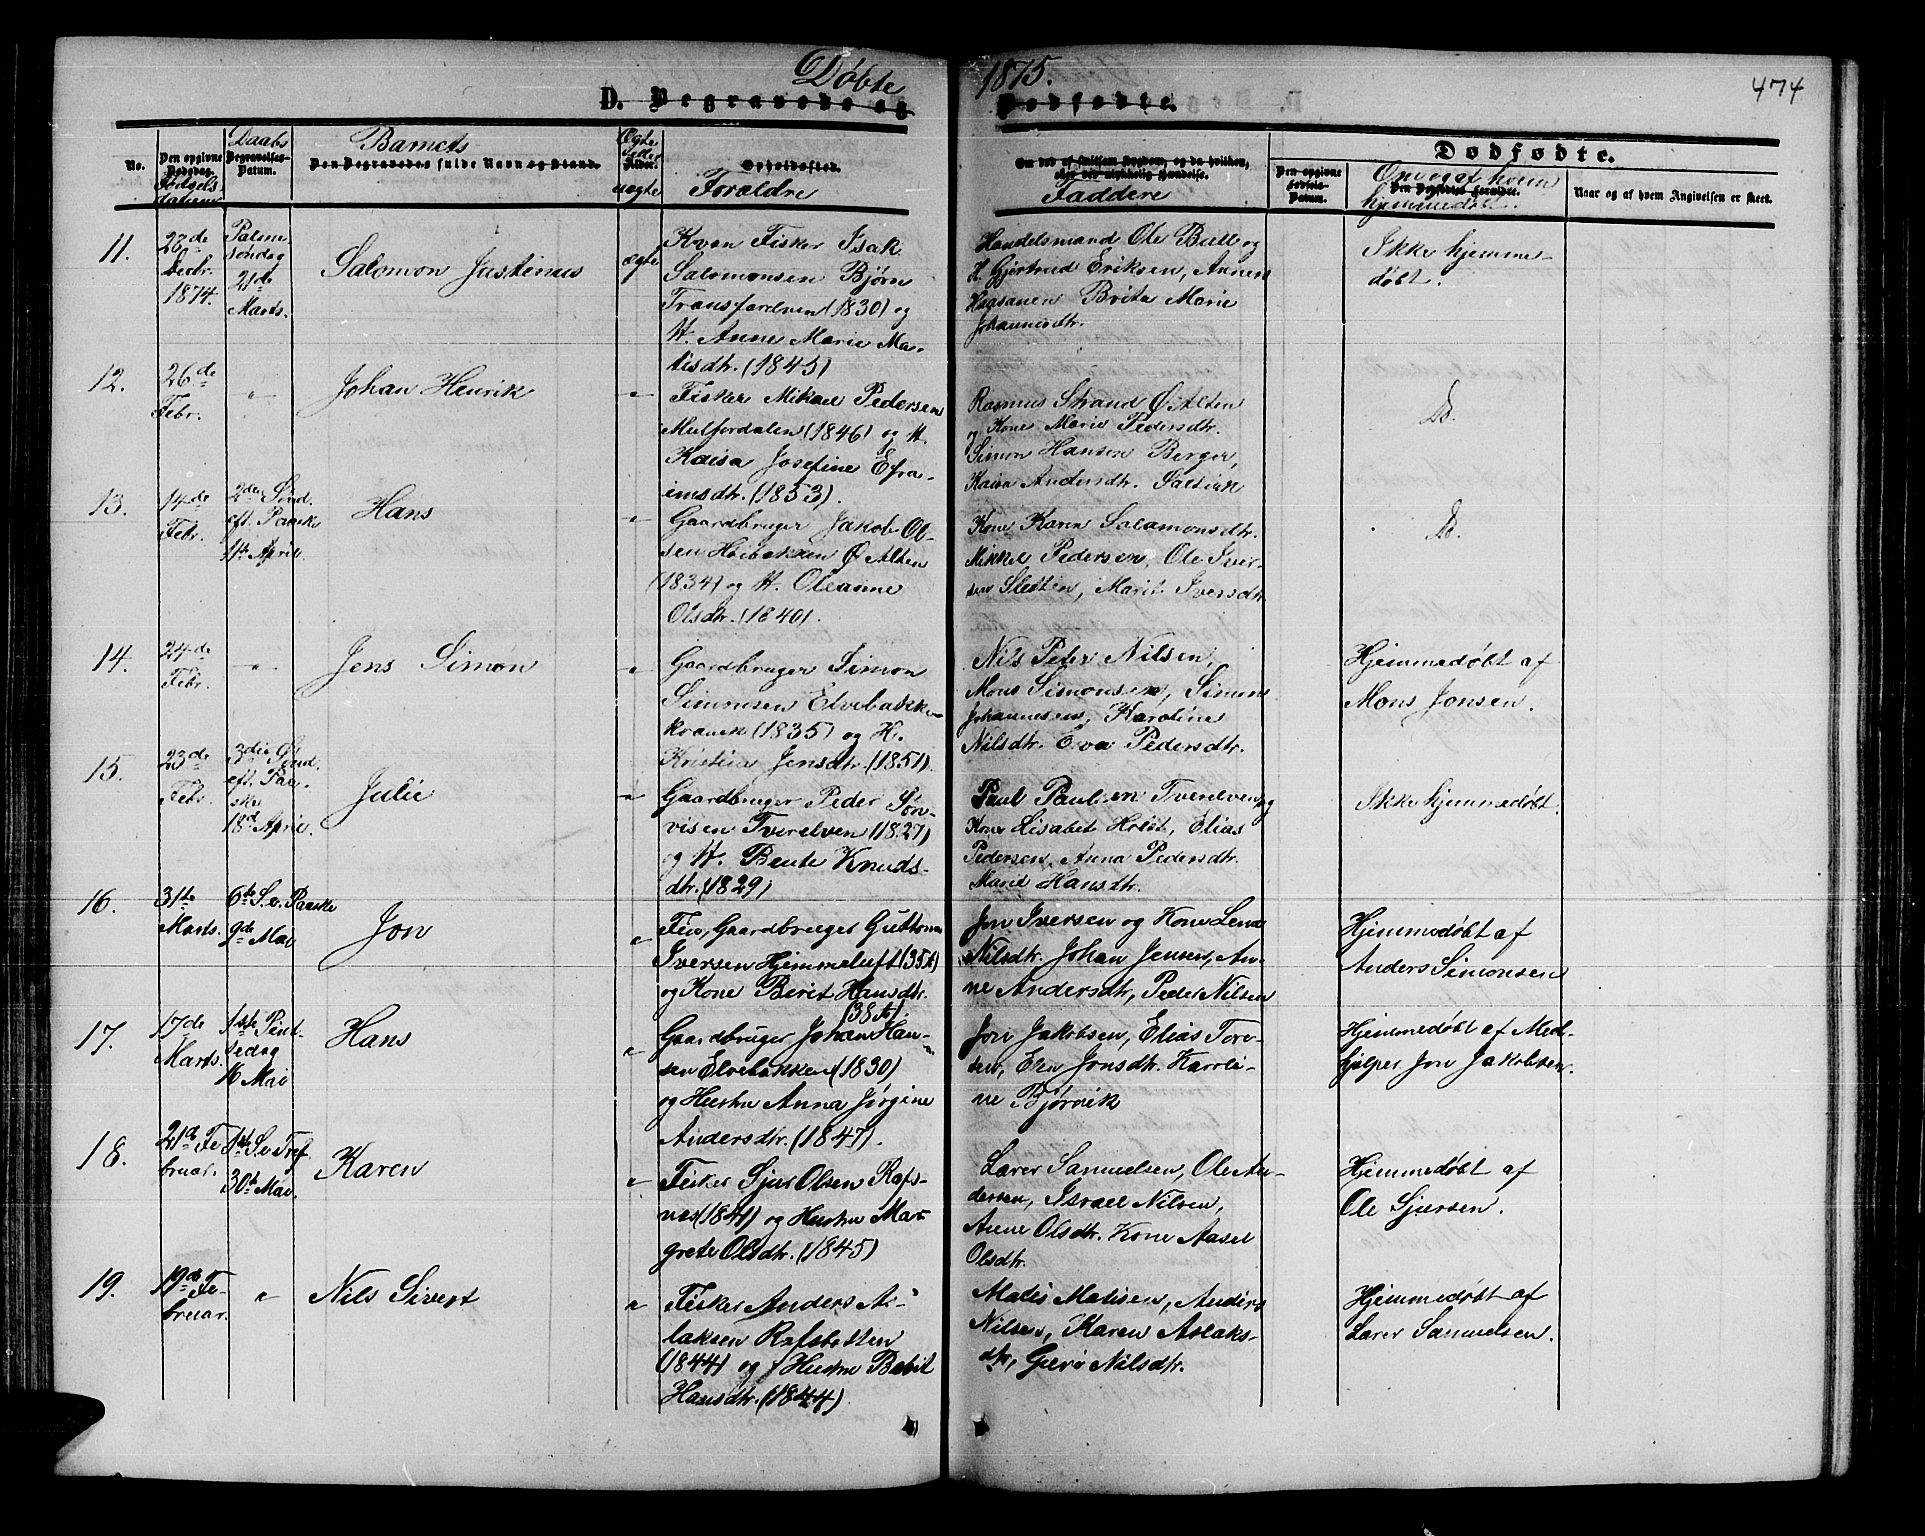 Døbte 1875.
474
D. Begravede og Dødfødte.
No.
Den opgivne Dødsdag.
Fødselsdatum
Daabs
Begravelses-Datum.
Barnets
Den Begravedes fulde Navn og Stand.
Ægte
eller
Alder.
uægte
Opholdssted.
Forældre
Om død af smitsom Sygdom, og da hvilken,
eller ved ulykkelig Hændelse.
Faddere
Dødfødte.
Den opgivne Fødsels-Datum.
Om og af hvem
Den Dødfødtes Forældre.
hjemmedøbt.
Naar og af hvem Angivelsen er skeet.
11.
28de
Decbr.
1874.
Palme
søndag
21de
Marts.
Salomon Justinus
ægte
Kvæn Fisker Isak
Salomonsen Bjørn
Transfarelven (1830) og
H. Anne Marie Ma-
tisdtr. (1845)
Handelsmand Ole Bull og
H. Gjertrud Eriksen,
Brita Marie
Johannesdtr.
Ikke hjemme-
døbt.
12.
26de
Febr.
"
Johan Henrik
"
Fisker Mikael Pedersen
Melsfordalen (1846) og H.
Kaisa Josefine Efra-
imsdtr. (1853).
Rasmus Strand Ø. Alten
og Kone Marie Pedersdtr.
Simon Hansen Berger,
Kaisa Andersdtr.
Do.
13.
14de
Febr.
2den Sønd.
eft. Paaske
11te April.
Hans
"
Gaardbruger Jakob Ol-
sen Høibakken Ø. Alten
(1834) og H. Oleanne
Olsdtr. (1840).
Kone Karen Salamonsdtr.
Mikkel Pedersen, Ole Iver-
sen Sletten, Marit Iversdtr.
Do.
14.
24de
Febr.
"
Jens Simon
"
Gaardbruger Simon
Simonsen Elvebakke-
kravik (1835) og H.
Kristine Jensdtr. (1851).
Nils Peter Nilsen,
Mons Simonsen, Simon
Johannesen, Karoline
Nilsdtr. Eva Pedersdtr.
Hjemmedøbt af
Mons Jonsen.
15.
23de
Febr.
3die Sønd.
eft. Paa-
ske
18de April.
Julie
"
Gaardbruger Peder Søn-
visen Tverelven (1827)
og H. Beate Knuds-
dtr. (1829)
Paul Paulsen Tverelven og
Kone Lisabet Holst, Elias
Pedersen, Anna Pedersdtr.
Marie Hansdtr.
Ikke hjemmedøbt.
16.
31te
Marts.
6te S. e. Paaske
9de Mai
Jon
"
Fin, Gaardbruger Guttorm
Iversen Hjemmeluft (35 A)
og Kone Berit Hansdtr.
(38 A).
Jon Iversen og Kone Lena
Nilsdtr. Johan Jensen, An-
ne Andersdtr, Peder Nilsen
Hjemmedøbt af
Anders Simonsen
17.
17de
Marts.
1ste Pint-
sedag
16 Mai
Hans
"
Gaardbruger Johan Han-
sen Elvebakken (1830)
og Hustru Anna Jørgine
Andersdtr. (1847).
Jon Jakobsen, Elias Tore-
sen, Elen Jonsdtr. Karoli-
ne Bjørvik
Hjemmedøbt af Med-
hjelper Jon Jakobsen.
18.
21de Fe
bruar.
1ste S. e. Tref
30te Mai
Karen
"
Fisker Sjur Olsen Rafs-
nes (1841) og Hustru Mar
grete Olsdtr. (1845)
Larer Samuelsen, Ole An-
dersen, Israel Nilsen,
Anne Olsdtr. Kone Aasel
Olsdtr.
Hjemmedøbt af
Ole Sjursen.
19.
19de Fe-
bruar.
"
Nils Sivert
"
Fisker Anders As-
laksen Rafsbotten
(1844) og Hustru Berit
Hansdtr. (1844)
Matis Matisen, Anders
Nilsen, Karen Aslaks-
dtr, Nilsdtr.
Hjemmedøbt af
Larer Samuelsen.